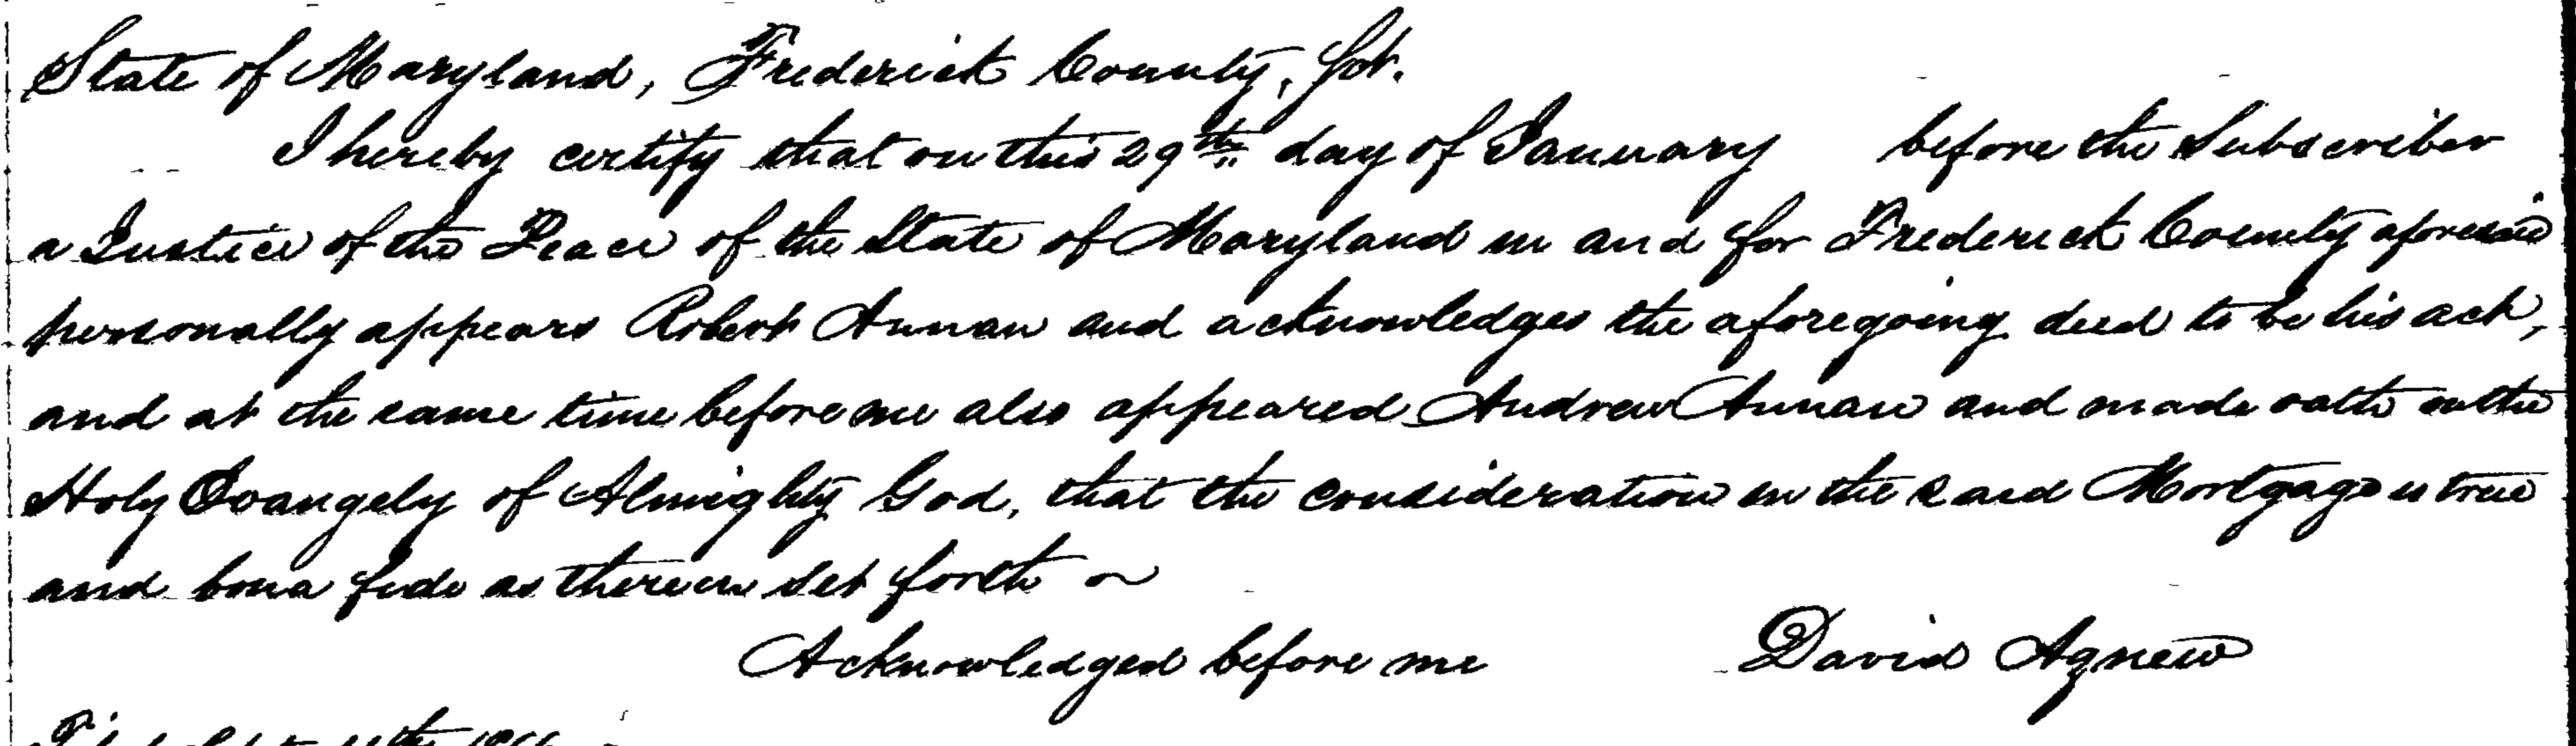 State of Maryland, Frederick County, Sct.
I hereby certify that on this 29th day of January before the Subscriber
a Justice of the Peace of the State of Maryland in and for Frederick County aforesaid
personally appears Robert Annan and acknowledges the aforegoing deed to be his act,
and at the same time before me also appeared Andrew Annan and made oath on the
Holy Evangely of Almighty God, that the consideration in the said Mortgage is true
and bona fide as therein set forth ~
Acknowledged before me David Agnew